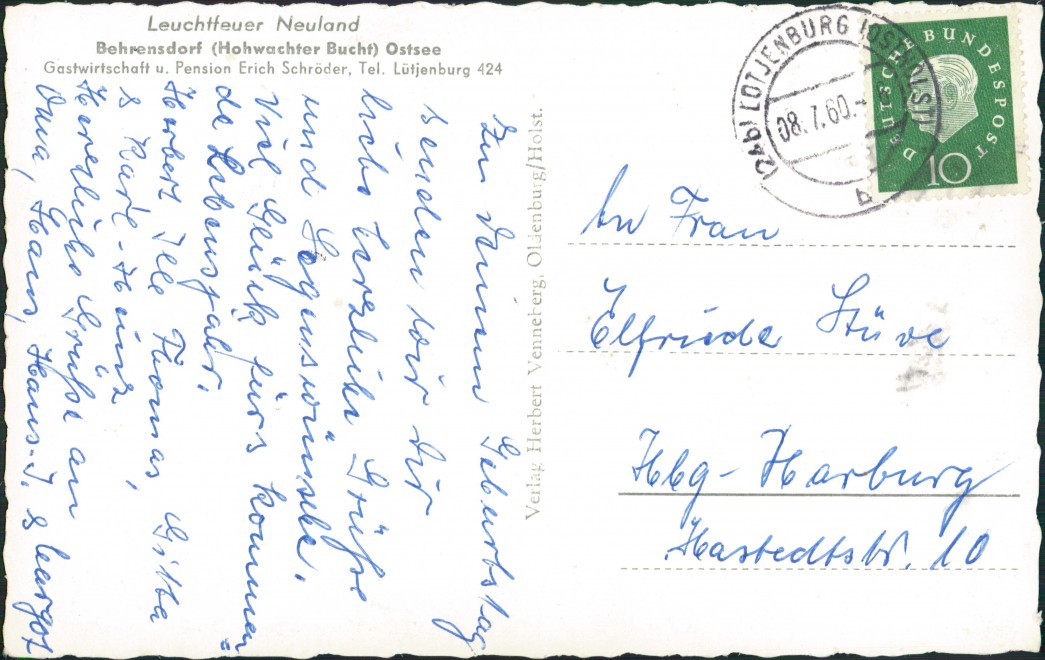 Leuchtfeuer Neuland
Behrensdorf (Hohwachter Bucht) Ostsee
Gastwirtschaft u. Pension Erich Schröder, Tel. Lütjenburg 424
Zu Deinem Geburtstag
senden wir Dir
liebe herzliche Grüße
und Segenswünsche.
Viel Glück fürs kommen
de Lebensjahr.
Herbert Ille Thomas, Gitta
& Karl-Heinz,
Herzliche Grüße an
Oma, Hans, Hans-J. & Margot
Verlag Herbert Venneberg, Oldenburg/Holst.
(24b) LÜTJENBURG (OSTHOLST)
08.7.60.
b
DEUTSCHE BUNDESPOST
10
An Frau
Elfriede Stüve
Hbg-Harburg
Hastedtstr. 10